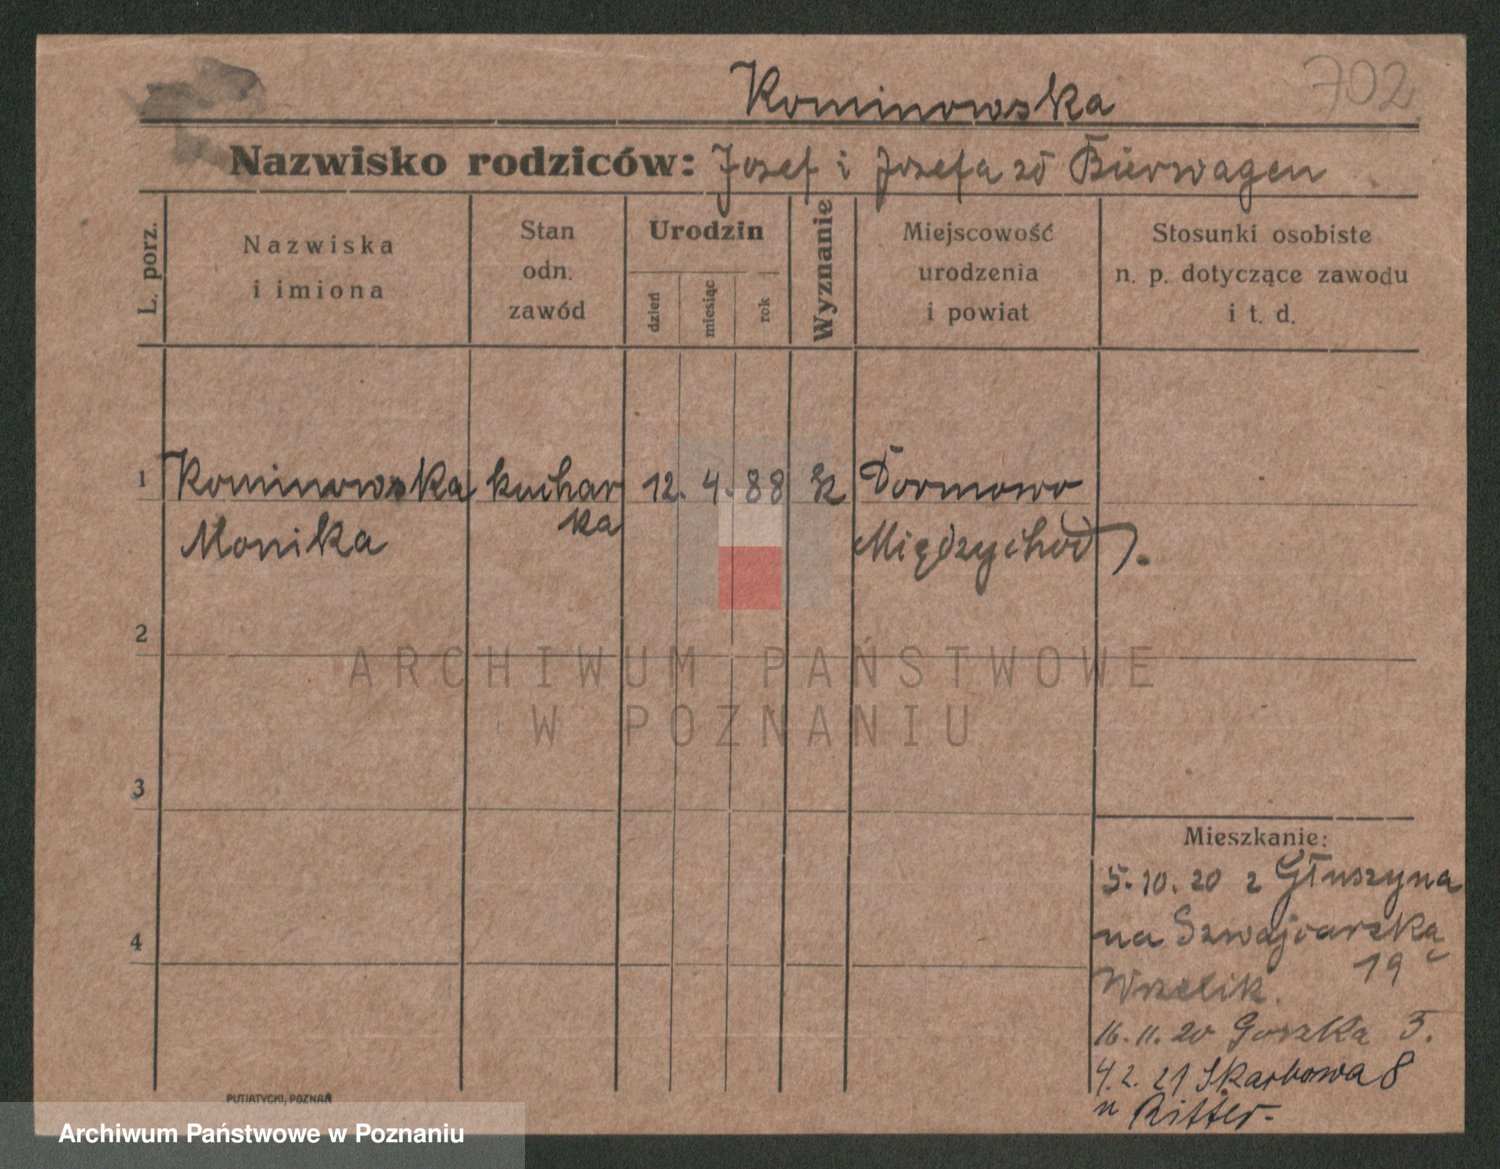 Kominowska
702
Nazwisko rodziców: Josef i Josefa zd Bierwagen
L. porz.
Nazwiska
i imiona
Stan
odn.
zawód
Urodzin
dzień
miesiąc
rok
Wyznanie
Miejscowość
urodzenia
i powiat
Stosunki osobiste
n. p. dotyczące zawodu
i t. d.
1 Kominowska kuchar 12. 4. 88 k Dormowo
Monika ka Międzychód
2
3
4
ARCHIWUM PAŃSTWOWE
W POZNANIU
Mieszkanie:
5.10.20 z Głuszyna
na Szwajcarską
19
16.11.20 5.
4.2.21 Skarbowa 8
u Ritter
PUTIATYCKI, POZNAŃ
Archiwum Państwowe w Poznaniu